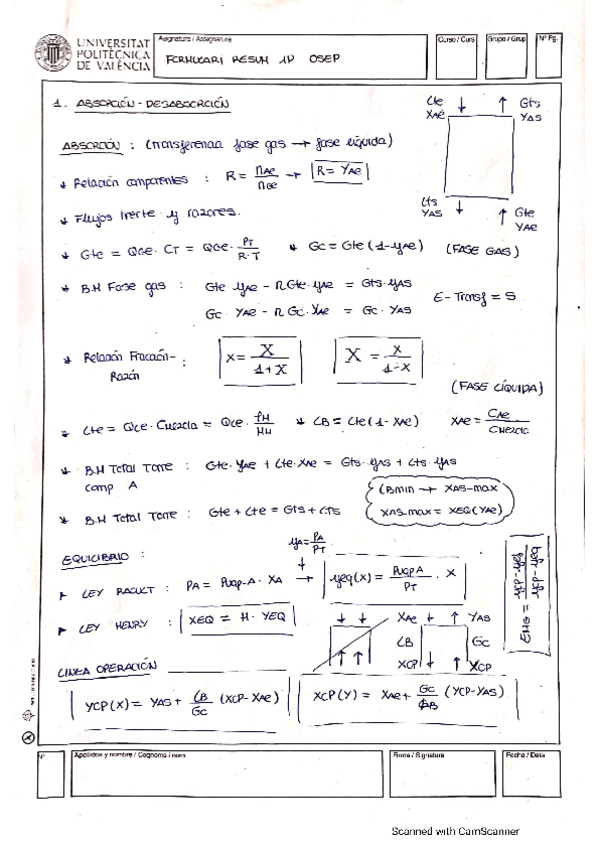 UNIVERSITAT
POLITÈCNICA
DE VALÈNCIA
Asignatura / Assignatura
FORMULARI RESUM 1P OSEP
Curso / Curs
Grupo / Grup
Nº Pg.
1. ABSORCIÓN - DESABSORCIÓN
Lte XAE ↓ ↑ Gts YAS
ABSORCIÓN : (transferencia fase gas → fase líquida)
* Relación componentes : R = nAe/nCe → R = YAe
* Flujos inerte y razones.
Lts YAS ↓ ↑ Gte YAE
* Gte = QGE · CT = QGE · PT/R·T * Gc = Gte (1-yAE) (FASE GAS)
* B.M Fase gas : Gte yAE - n Gte yAE = Gts·yAS
Gc YAE - n Gc YAE = Gc YAS
E-Transf = S
* Relación Fracción- Razón : x = X/1+X X = x/1-x
(FASE LÍQUIDA)
* Lte = QLE · Cmezcla = QLE · ρM/MM * LB = Lte (1-XAE) XAE = CAE/Cmezcla
* B.M Total Torre comp A : Gte·yAE + Lte·XAE = Gts·yAS + Lts·yAS
* B.M Total Torre : Gte + Lte = Gts + Lts
LBmin → XAS-max
XAS-max = XEQ(YAE)
EQUILIBRIO :
yA = PA/PT
↓
LEY RAOULT : PA = Pvap-A · XA → yeq(x) = PvapA/PT · X
LEY HENRY : XEQ = H · YEQ
XAE ↓ ↑ YAS
LB Gc
XCP ↓ ↑ YCP
LINEA OPERACIÓN
YCP(X) = YAS + LB/Gc (XCP-XAE)
XCP(Y) = XAE + Gc/LB (YCP-YAS)
Nº
Apellidos y nombre / Cognoms i nom
Firma / Signatura
Fecha / Data
Scanned with CamScanner